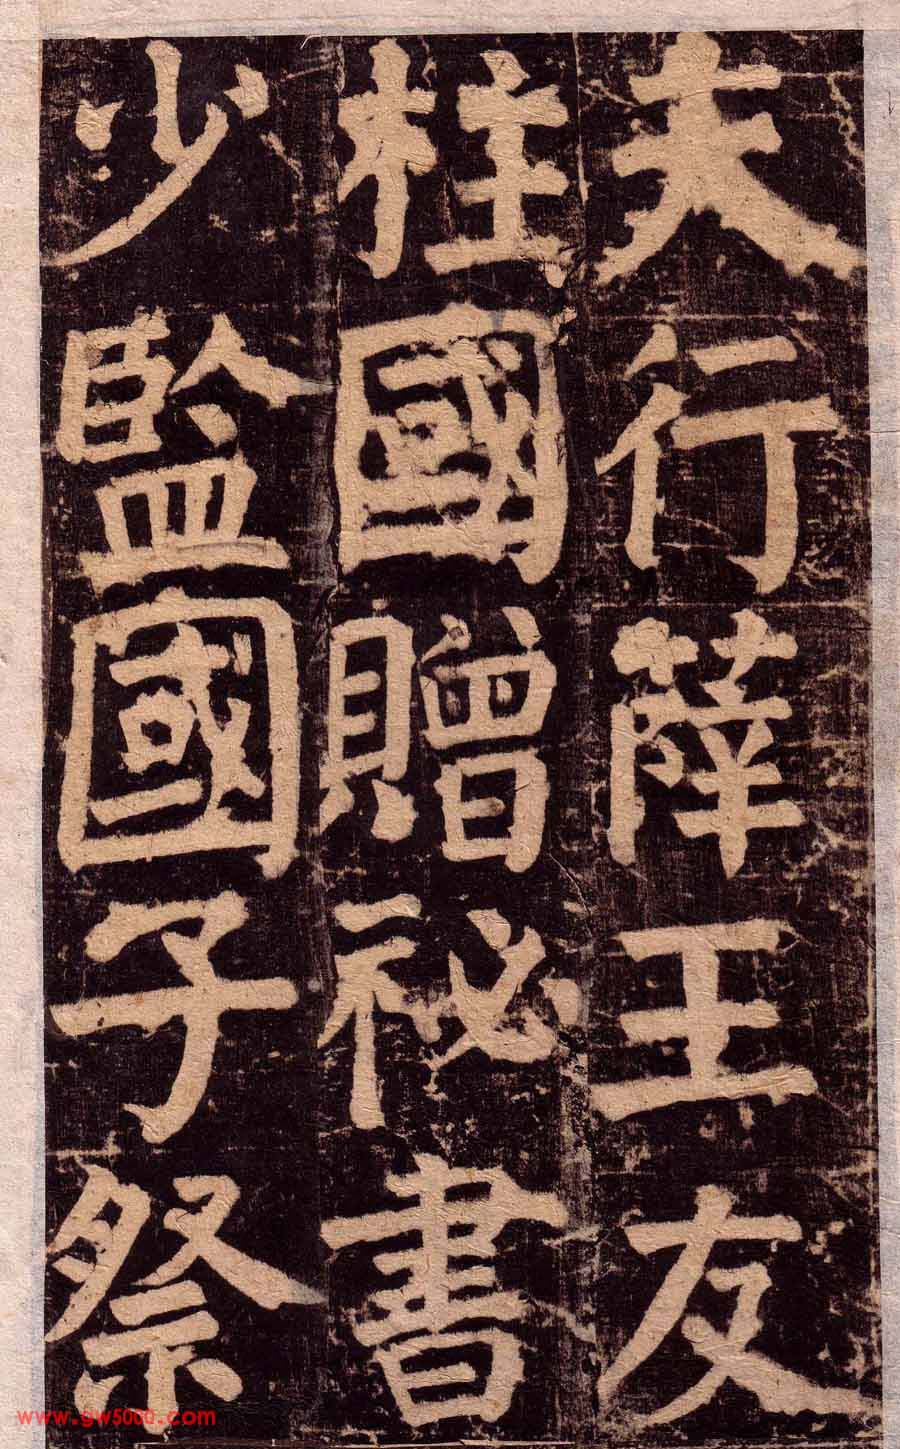 夫行薛王友
柱國贈祕書
少監國子祭
www.gw5000.com